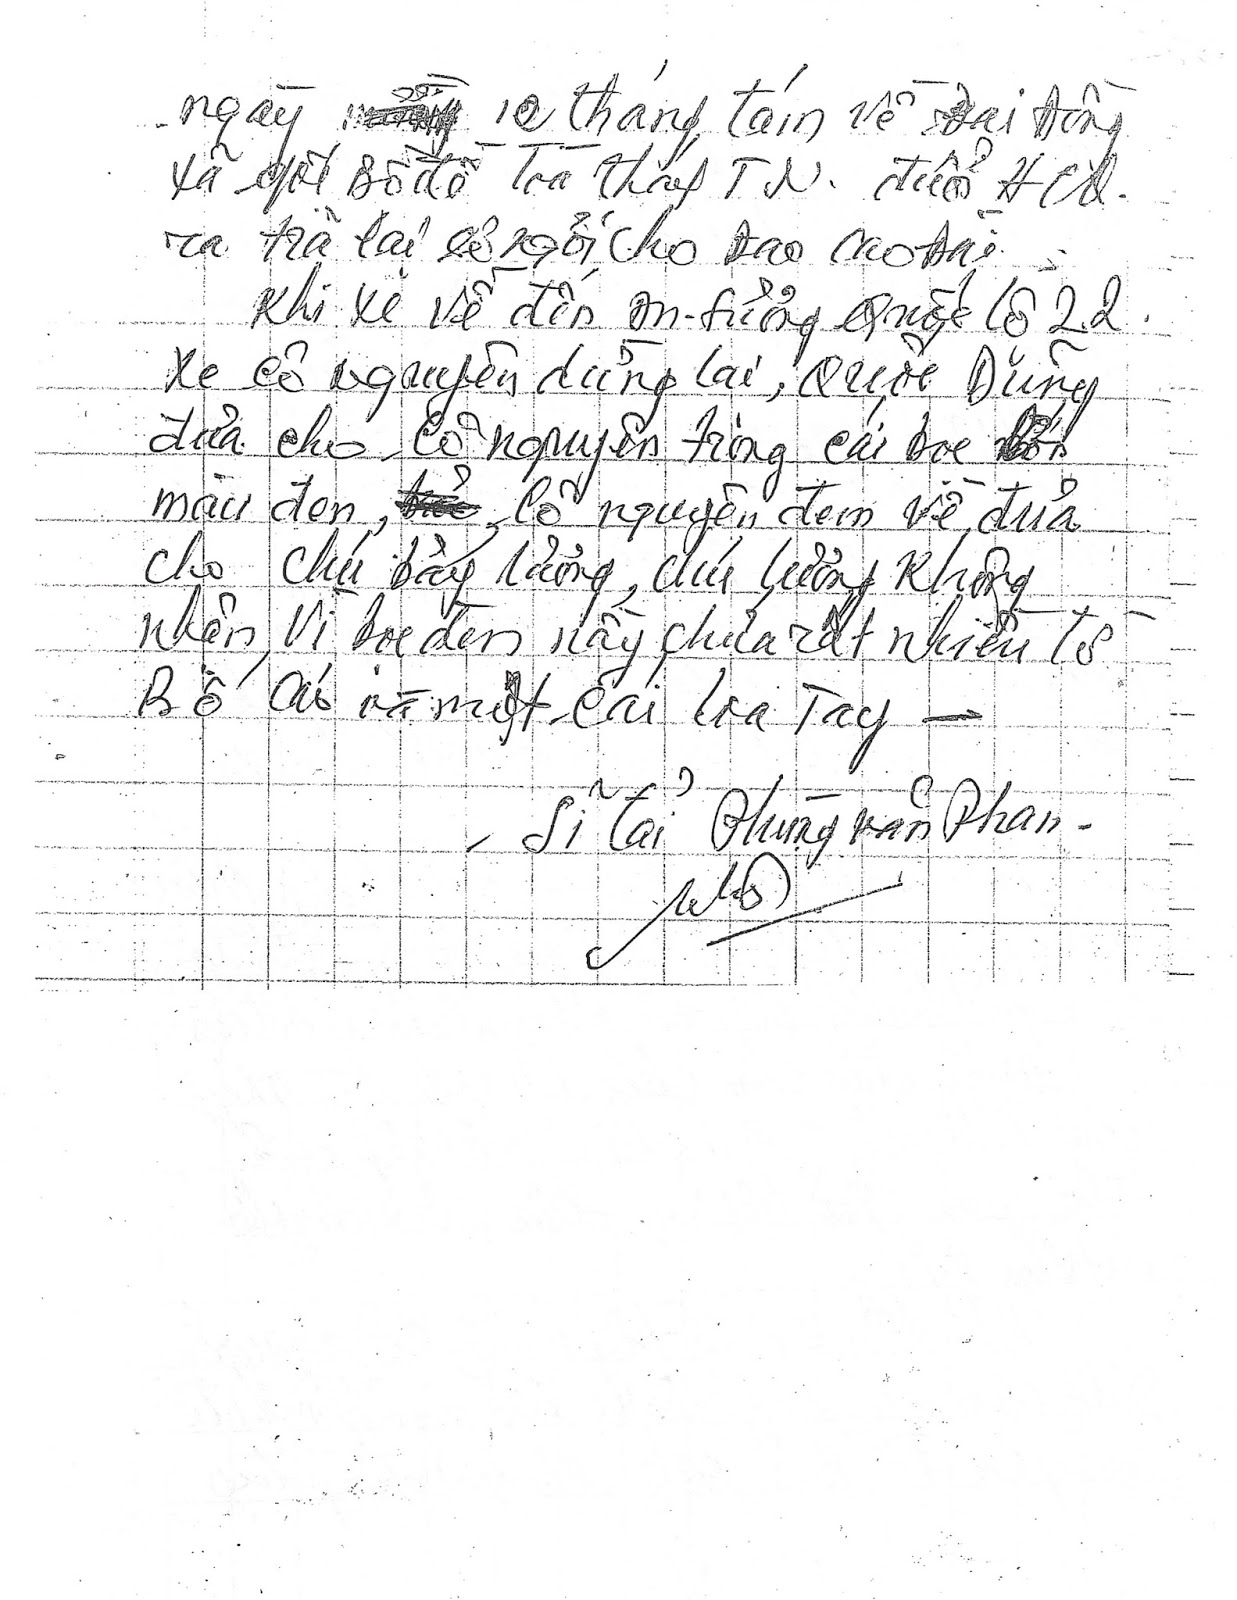 ngày 10 tháng tám về Đại Đồng
xã gọi Bồ đề Toà thánh T N. đuổi H C Q.
ra trả lại cơ ngơi cho Đạo Cao Đài.
Khi xe về đến Quốc lộ 22.
Xe Cô nguyên dừng lại, Quốc Dũng
đưa cho Cô nguyên trong cái bọc
màu đen, Cô nguyên đem về đưa
cho chú bảy lưởng, chú lưởng Không
nhận, Vì bọc đen nầy chứa rất nhiều tờ
Bố Cáo và một cái loa Tay —
Sĩ tải Phùng văn Phan -